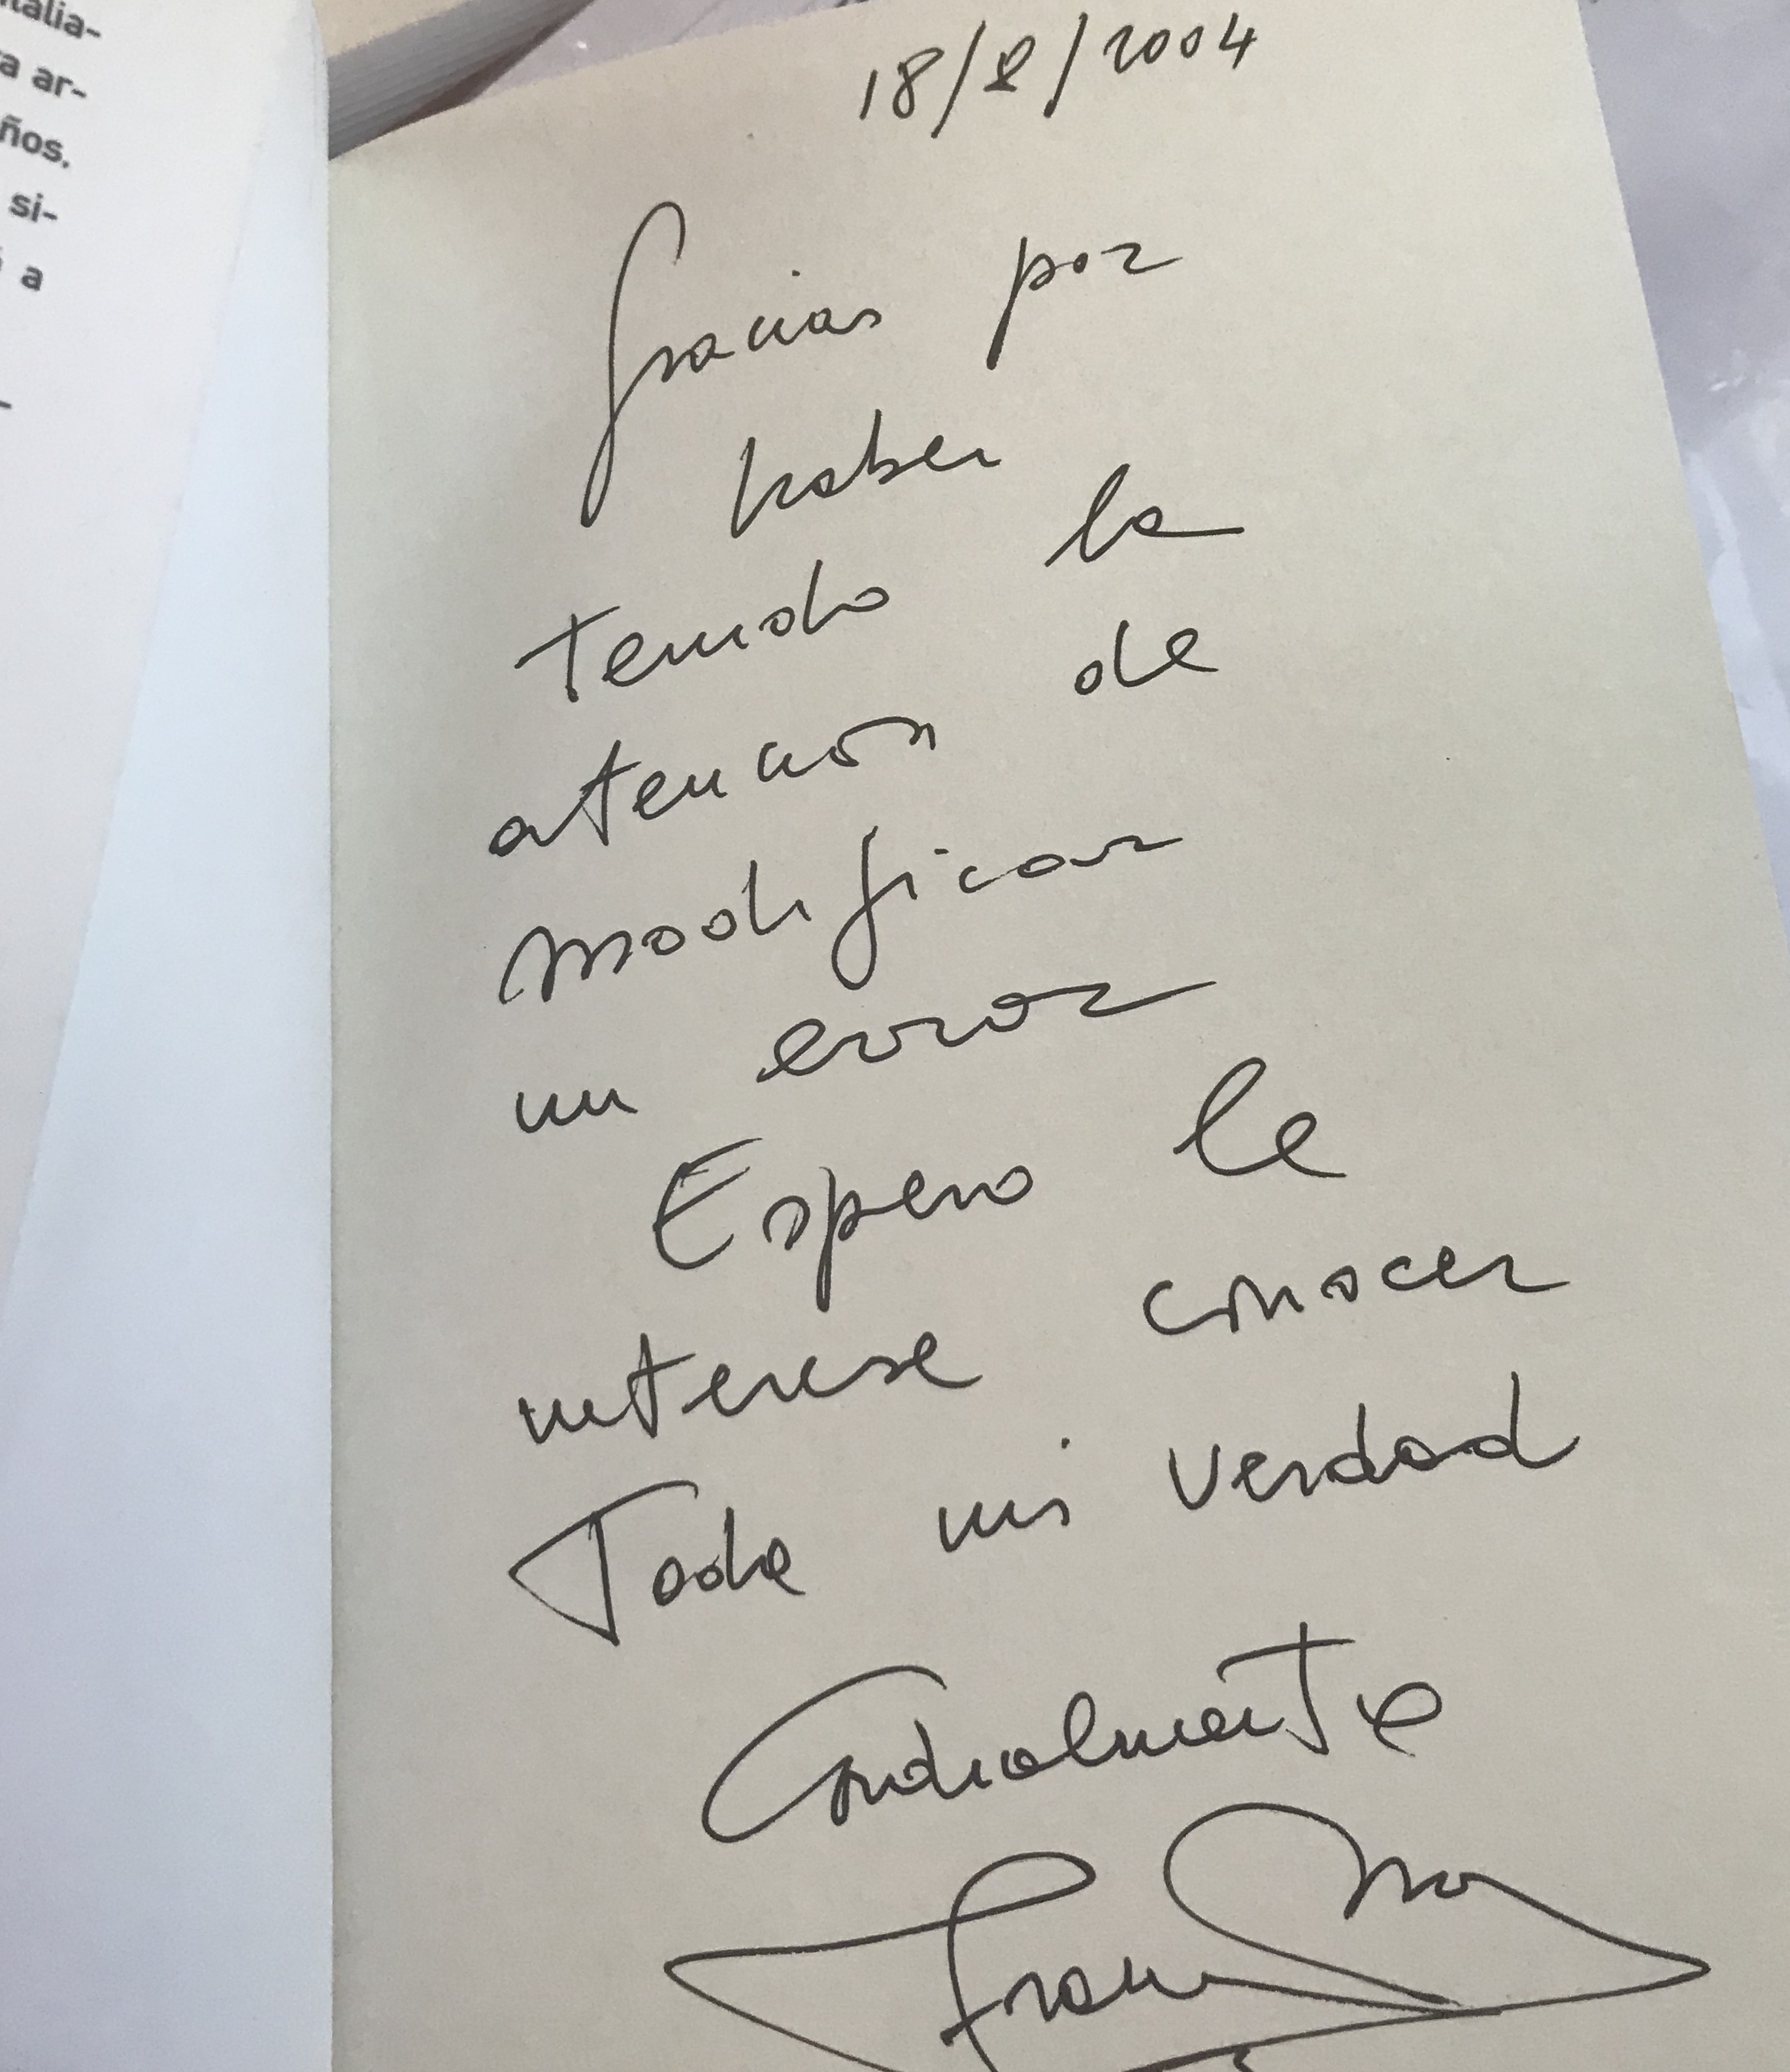 talia-
a ar-
ños.
si-
a
18/8/2004
Gracias por
haber
tenido la
atención de
modificar
un error
Espero le
interese conocer
Toda mi verdad
Cordialmente